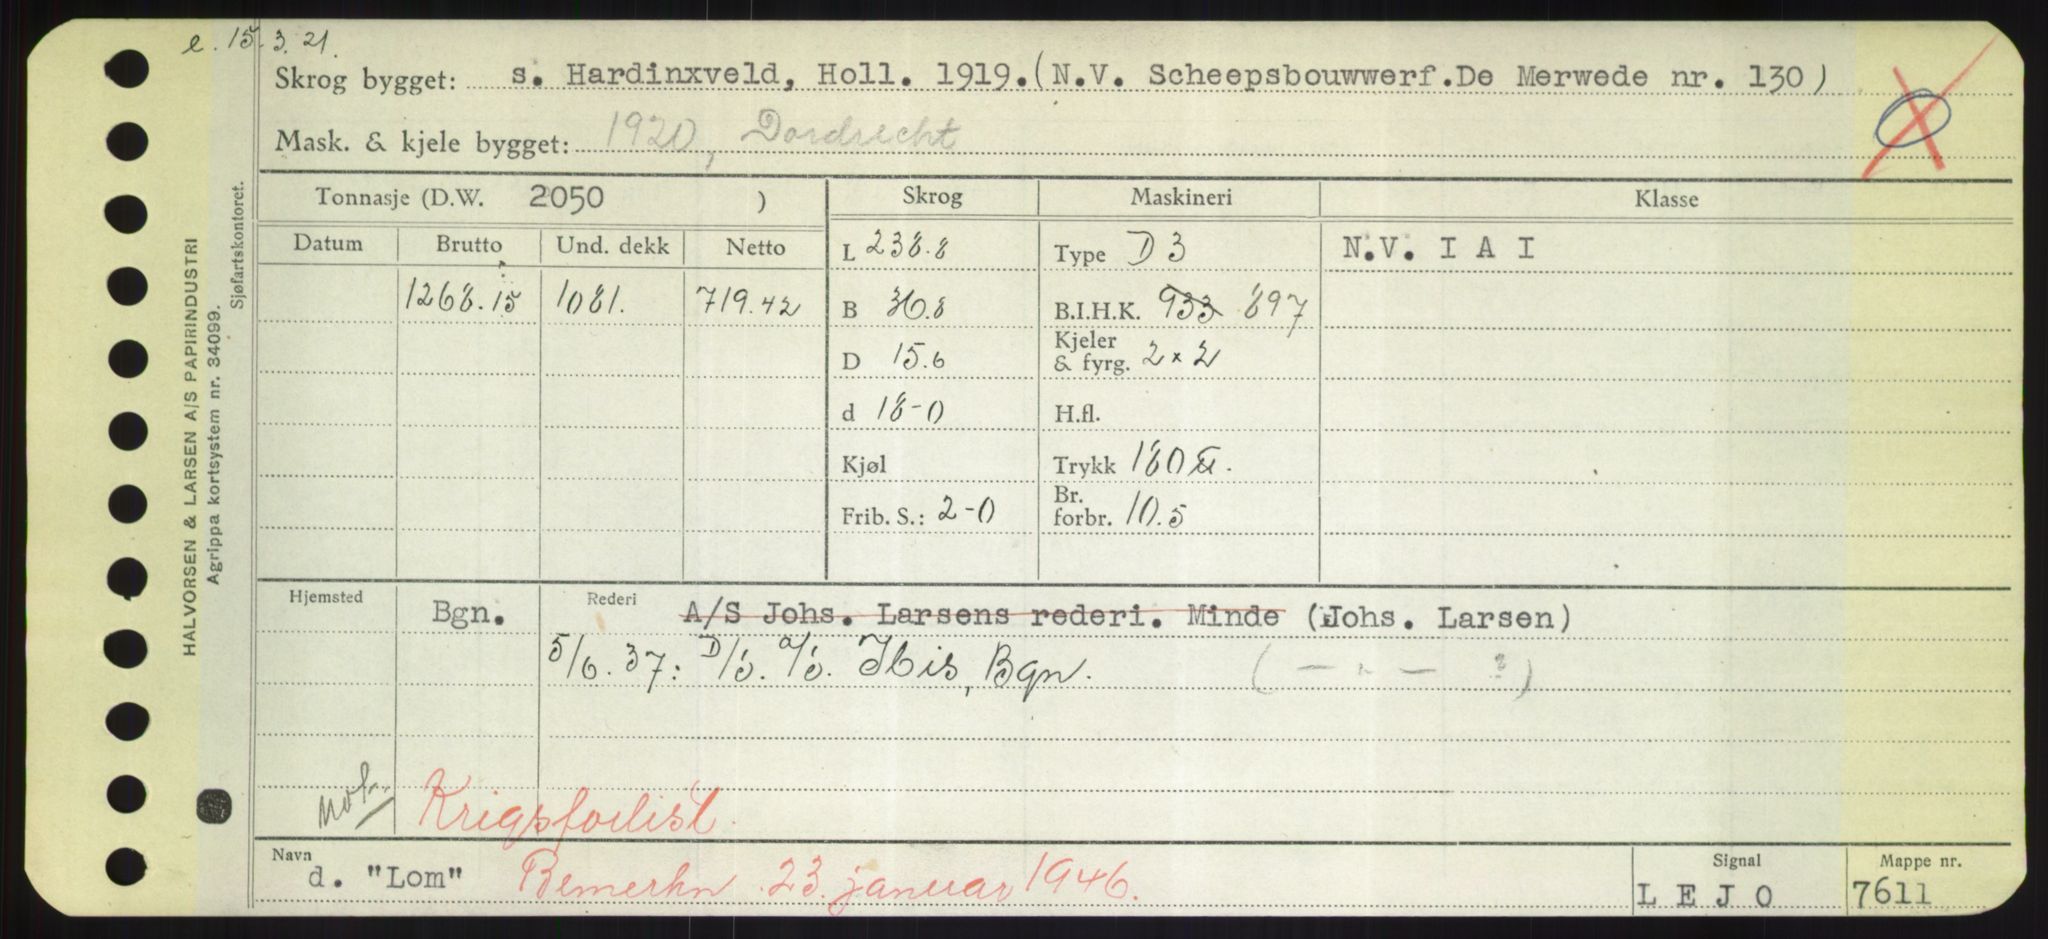 e. 15.3.21.
Skrog bygget: s. Hardinxveld, Holl. 1919. (N.V. Scheepsbouwwerf.De Merwede nr. 130)
Mask. & kjele bygget: 1920, Dordrecht
Tonnasje (D.W. 2050 ) Skrog Maskineri Klasse
Datum Brutto Und. dekk Netto L 238.8 Type D 3 N.V. I A I
1268.15 1081. 719.42 B 36.8 B.I.H.K. 933 897
D 15.6 Kjeler & fyrg. 2 x 2
d 18-0 H.fl.
Kjøl Trykk 180 .
Frib. S.: 2-0 Br. forbr. 10.5
Hjemsted Bgn. Rederi A/S Johs. Larsens rederi. Minde (Johs. Larsen)
5/6.37: D/S. A/S. Ibis, Bgn. ( — „ — )
Krigsforlist.
Navn d. "Lom" Bemerkn. 23. januar 1946. Signal LEJO Mappe nr. 7611
HALVORSEN & LARSEN A/S PAPIRINDUSTRI
Agrippa kortsystem nr. 34099.
Sjøfartskontoret.